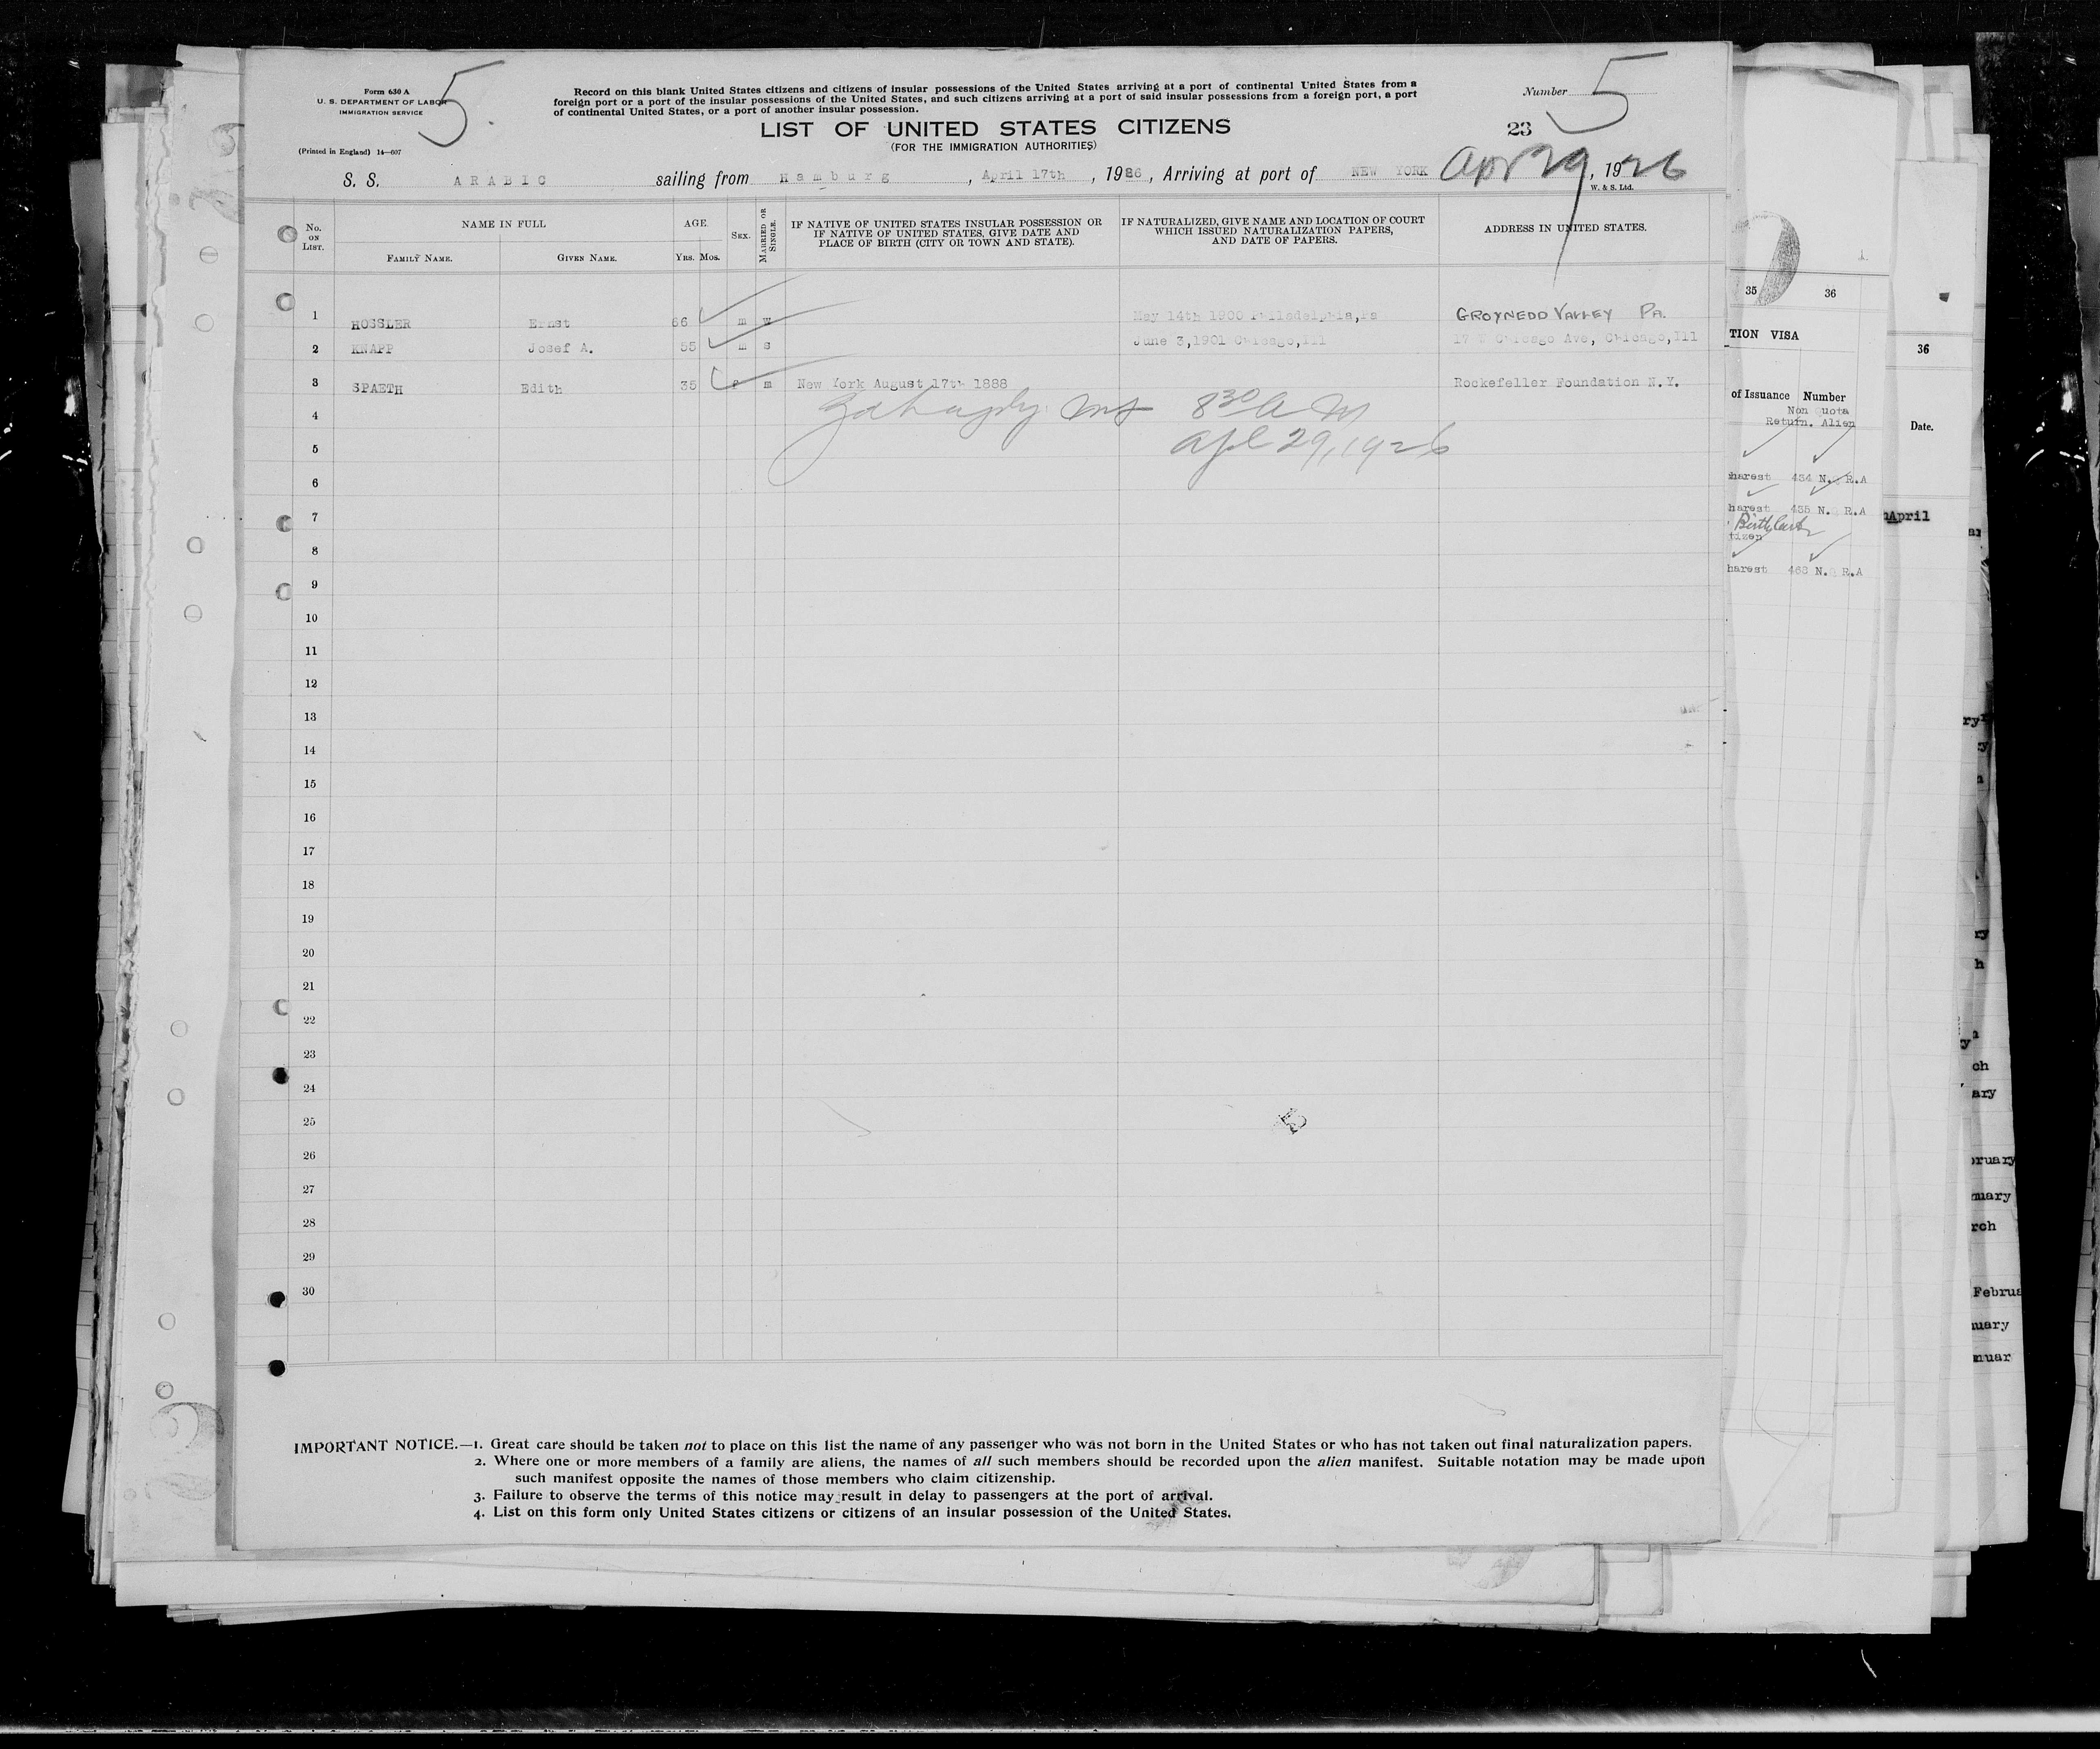 Form 630 A
U. S. DEPARTMENT OF LABOR
IMMIGRATION SERVICE
(Printed in England) 14—607
5.
Record on this blank United States citizens and citizens of insular possessions of the United States arriving at a port of continental United States from a
foreign port or a port of the insular possessions of the United States, and such citizens arriving at a port of said insular possessions from a foreign port, a port
of continental United States, or a port of another insular possession.
Number 5
LIST OF UNITED STATES CITIZENS
23
(FOR THE IMMIGRATION AUTHORITIES)
S. S. ARABIC sailing from Hamburg, April 17th, 1926, Arriving at port of NEW YORK Apr 29, 1926
W. & S. Ltd.
No. ON LIST. NAME IN FULL AGE. SEX. MARRIED OR SINGLE. IF NATIVE OF UNITED STATES INSULAR POSSESSION OR IF NATIVE OF UNITED STATES, GIVE DATE AND PLACE OF BIRTH (CITY OR TOWN AND STATE). IF NATURALIZED, GIVE NAME AND LOCATION OF COURT WHICH ISSUED NATURALIZATION PAPERS, AND DATE OF PAPERS. ADDRESS IN UNITED STATES.
FAMILY NAME. GIVEN NAME. YRS. MOS.
1 HOSSLER Ernst 66 m w May 14th 1900 Philadelphia,Pa GROYNEDD VALLEY PA.
2 KNAPP Josef A. 55 m s June 3,1901 Chicago,Ill 17 W Chicago Ave, Chicago,Ill
3 SPAETH Edith 35 f m New York August 17th 1888 Rockefeller Foundation N.Y.
4 8 30 A M
5 Apl 29, 1926
6
7
8
9
10
11
12
13
14
15
16
17
18
19
20
21
22
23
24
25
26
27
28
29
30
5
IMPORTANT NOTICE.—1. Great care should be taken not to place on this list the name of any passenger who was not born in the United States or who has not taken out final naturalization papers.
2. Where one or more members of a family are aliens, the names of all such members should be recorded upon the alien manifest. Suitable notation may be made upon
such manifest opposite the names of those members who claim citizenship.
3. Failure to observe the terms of this notice may result in delay to passengers at the port of arrival.
4. List on this form only United States citizens or citizens of an insular possession of the United States.
35 36
TION VISA
of Issuance Number
Non Quota
Return. Alien
harest 434 N. R.A
harest 435 N. R.A
Birth Cert
tizen
harest 468 N. R.A
36
Date.
April
ry
ry
h
ch
ary
bruary
nuary
rch
Februa
nuary
nuar